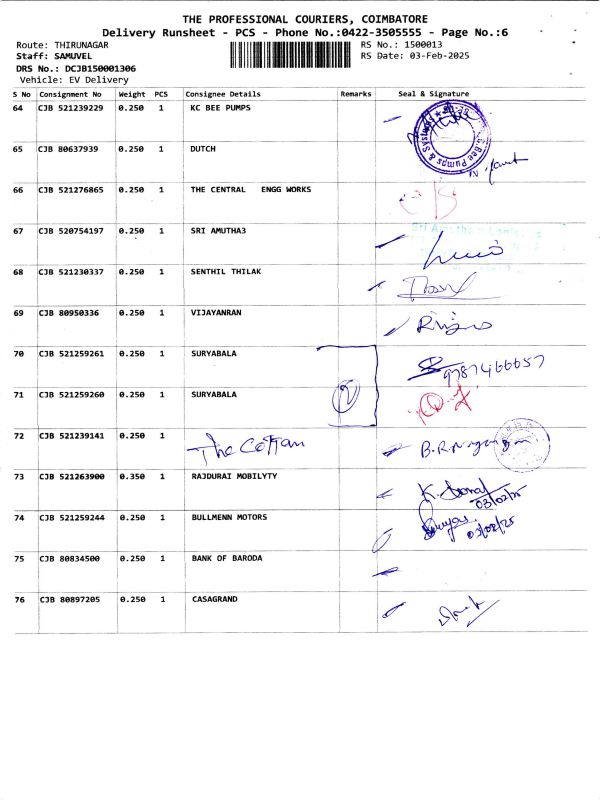 THE PROFESSIONAL COURIERS, COIMBATORE
Delivery Runsheet - PCS - Phone No.:0422-3505555 - Page No.:6
Route: THIRUNAGAR RS No.: 1500013
Staff: SAMUVEL RS Date: 03-Feb-2025
DRS No.: DCJB150001306
Vehicle: EV Delivery
S No Consignment No Weight PCS Consignee Details Remarks Seal & Signature
64 CJB 521239229 0.250 1 KC BEE PUMPS
Bee Pumps & Systems
65 CJB 80637939 0.250 1 DUTCH
66 CJB 521276865 0.250 1 THE CENTRAL ENGG WORKS
67 CJB 520754197 0.250 1 SRI AMUTHA3
Sri Amutha
68 CJB 521230337 0.250 1 SENTHIL THILAK
69 CJB 80950336 0.250 1 VIJAYANRAN
70 CJB 521259261 0.250 1 SURYABALA
9787466657
71 CJB 521259260 0.250 1 SURYABALA
72 CJB 521239141 0.250 1 The Cotton
73 CJB 521263900 0.350 1 RAJDURAI MOBILYTY
03/02/25
74 CJB 521259244 0.250 1 BULLMENN MOTORS
03/02/25
75 CJB 80834500 0.250 1 BANK OF BARODA
76 CJB 80897205 0.250 1 CASAGRAND